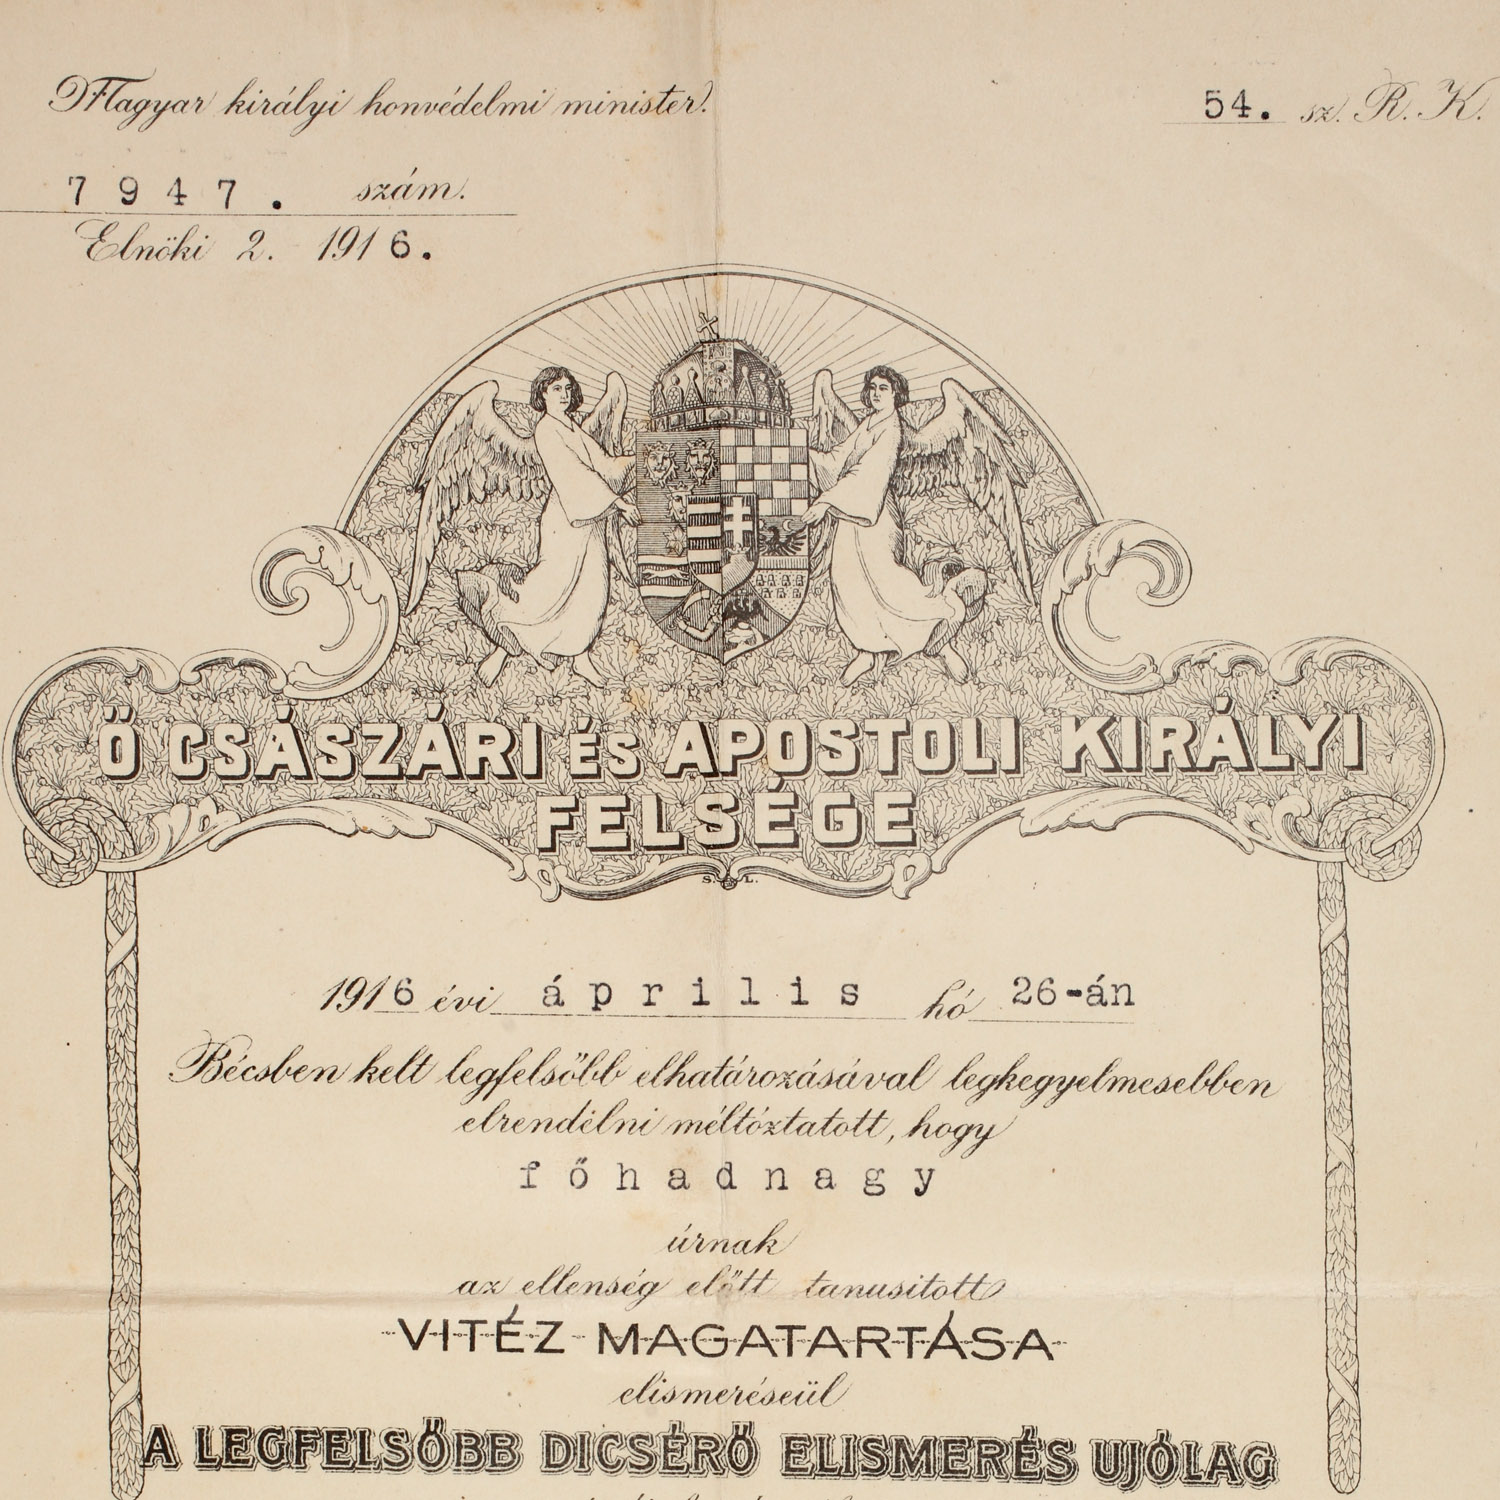 Magyar királyi honvédelmi minister.
54. sz. R. K.
7947. szám.
Elnöki 2. 1916.
Ő CSÁSZÁRI ÉS APOSTOLI KIRÁLYI
FELSÉGE
S. L.
1916 évi április hó 26-án
Bécsben kelt legfelsőbb elhatározásával legkegyelmesebben
elrendelni méltóztatott, hogy
főhadnagy
úrnak
az ellenség előtt tanusitott
VITÉZ MAGATARTÁSA
elismeréseül
A LEGFELSŐBB DICSÉRŐ ELISMERÉS UJÓLAG